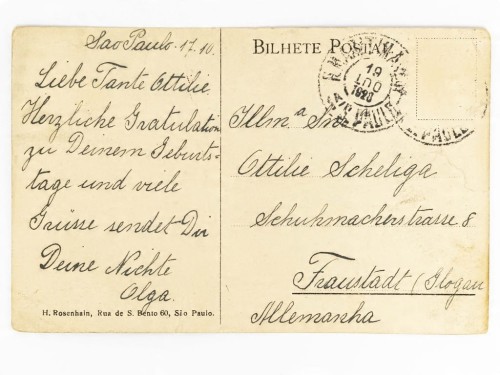 Sao Paulo. 17.10.
BILHETE POSTAL
Liebe Tante Ottilie
Herzliche Gratulation
zu Deinem Geburts-
tage und viele
Grüsse sendet Dir
Deine Nichte
Olga.
H. Rosenhain, Rua de S. Bento 60, São Paulo.
Illmª Snra
Ottilie Scheliga
Schuhmacherstrasse 8
Fraustadt / Glogau
Allemanha
19
PAULO
PAULO